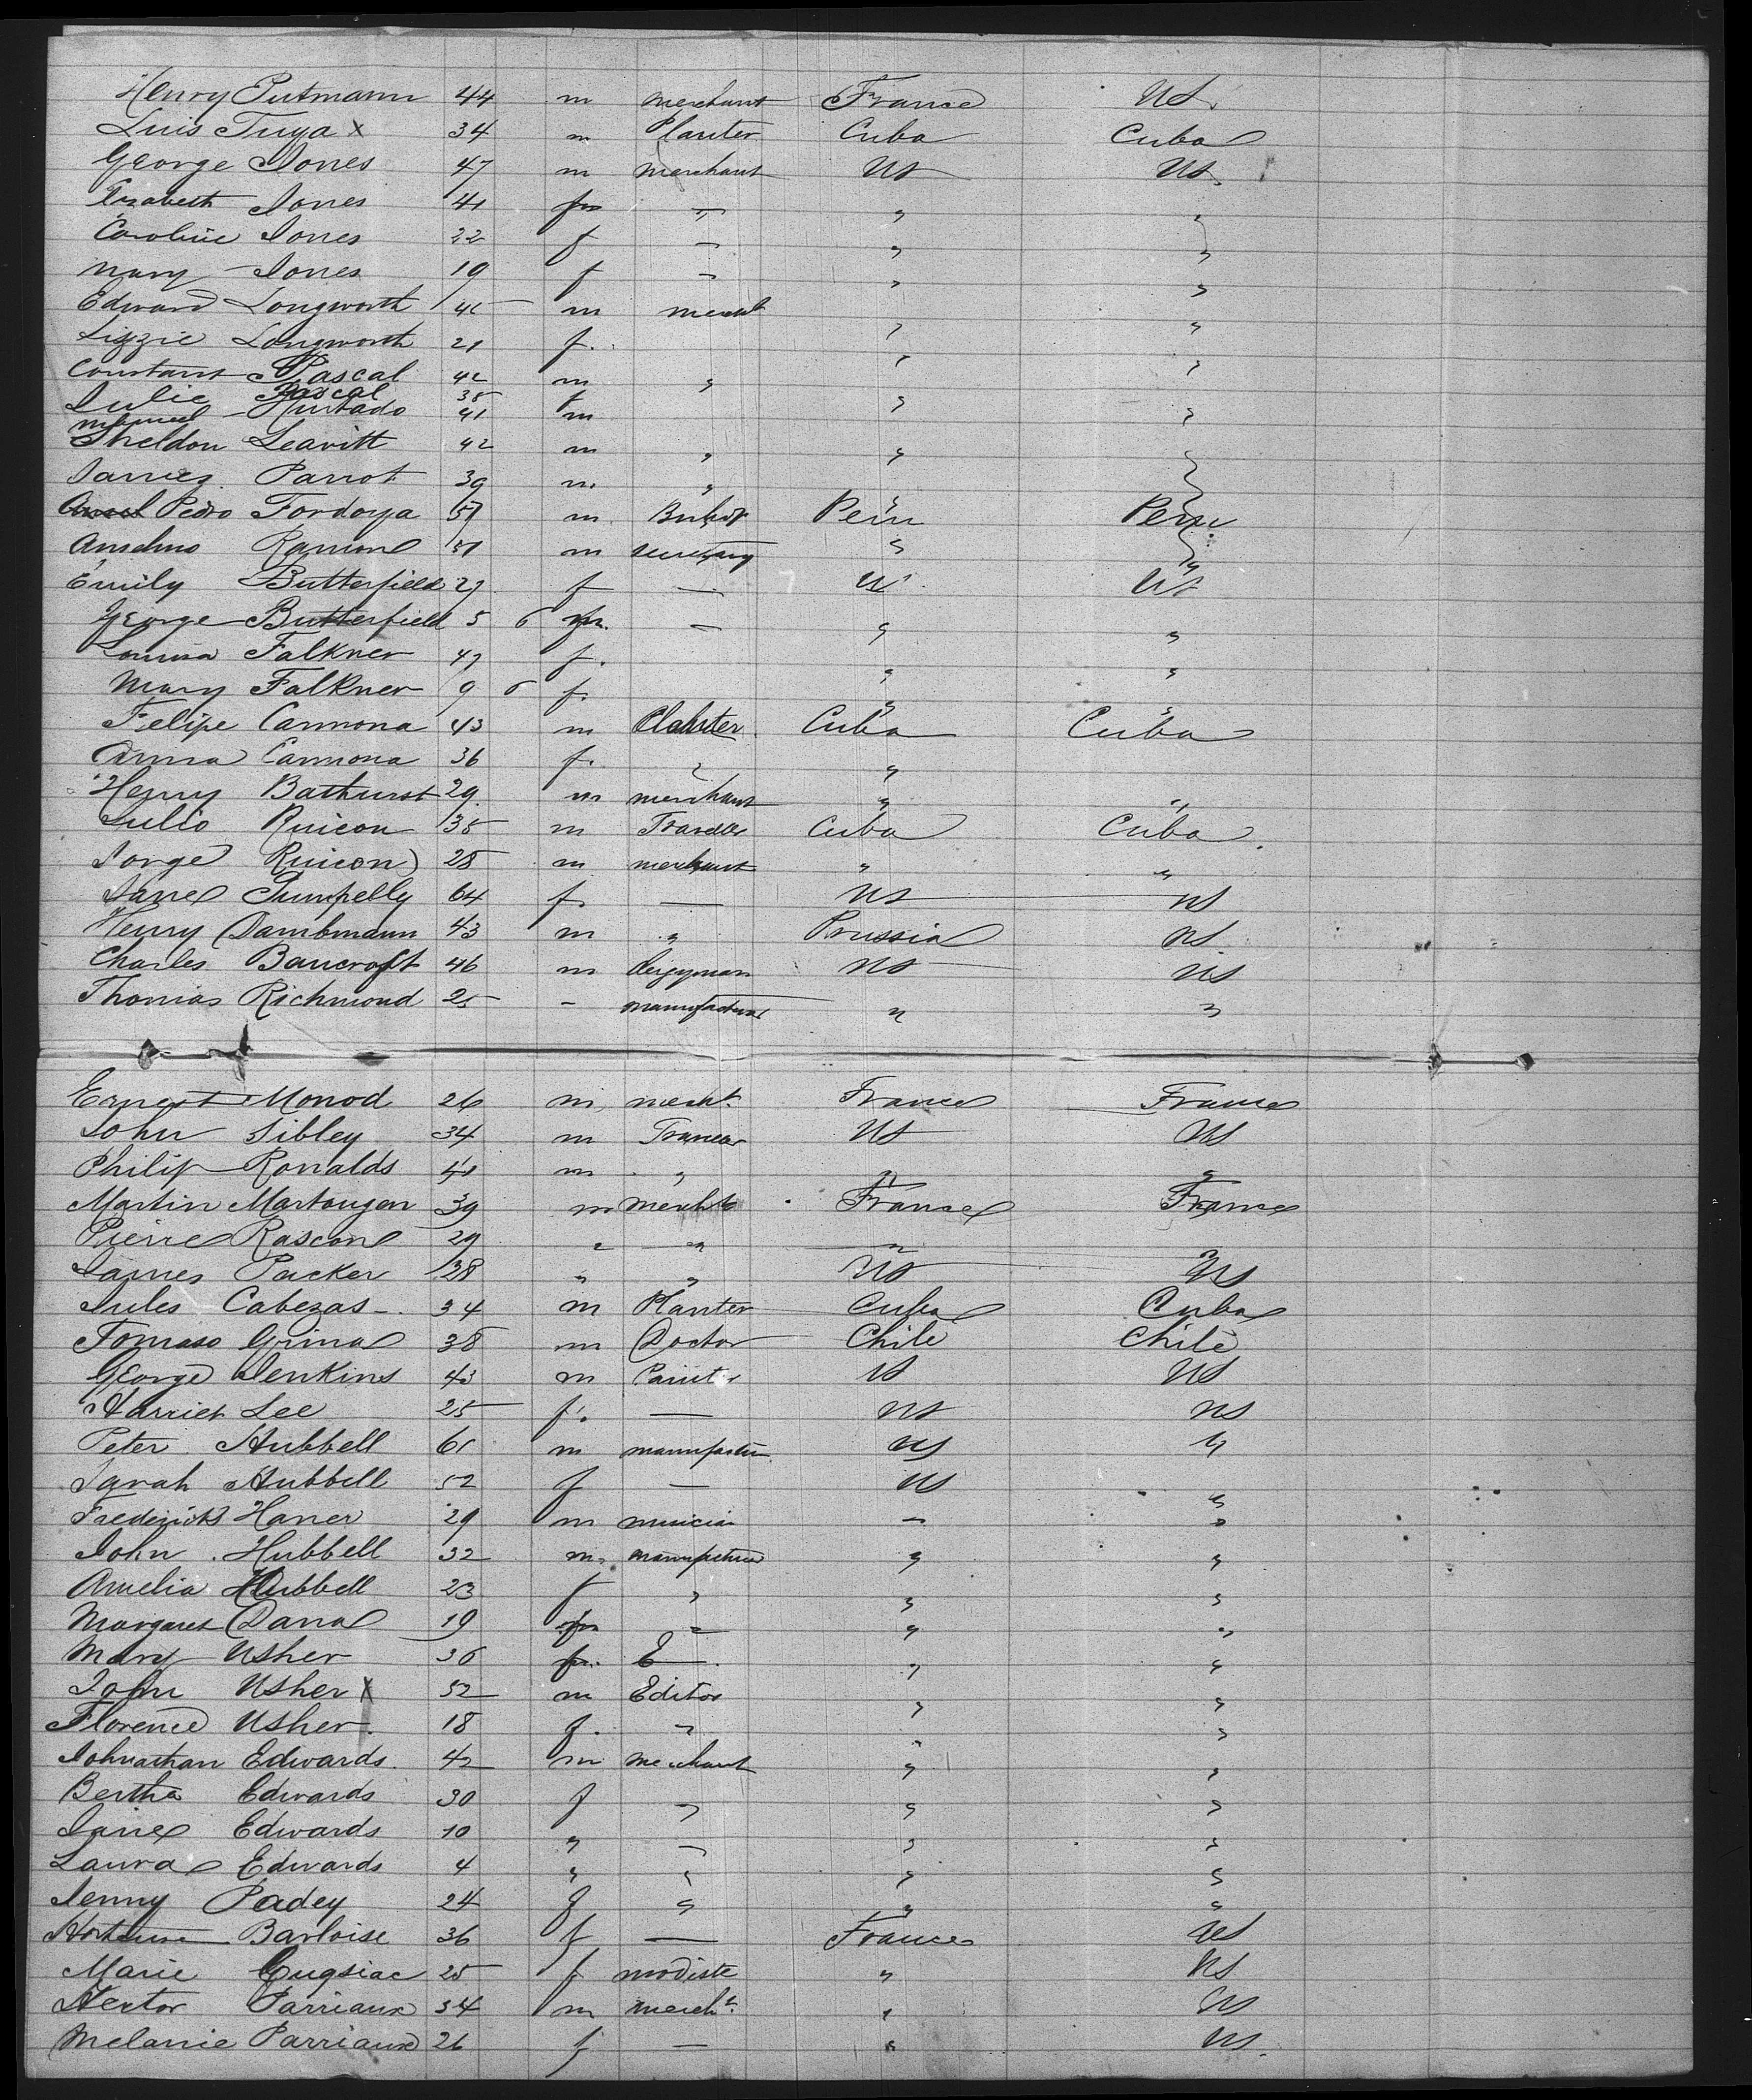 Henry Putmann 44 m merchant France US.
Luis Tuya x 34 m Planter Cuba Cuba
George Jones 47 m merchant US US.
Elizabeth Jones 41 fm — " "
Caroline Jones 22 f — " "
Mary Jones 19 f " " "
Edward Longworth 45 m mercht " "
Lizzie Longworth 21 f. " "
Constant Pascal 42 m " " "
Julie Pascal 38 f
Manuel Hurtado 41 m
Sheldon Leavitt 42 m " " "
James Parrot 39 m. " "
Pedro Tordoya 57 m. Bishop Peru Peru
Anselmo Ramon 31 m secretary " "
Emily Butterfield 27 f — US US
George Butterfield 5 6 m. — " "
Falkner 47 f. " "
Mary Falkner 9 6 f. " "
Felipe Carmona 43 m Planter Cuba Cuba
Anna Carmona 36 f. " "
Henry Bathurst 29. m merchant " "
Julio Ruicon 35 m Traveller Cuba Cuba.
Jorge Ruicon 28 m merchant " "
Jane Pumpelly 64 f. — US US
Henry Dambmann 43 m " Prussia US
Charles Bancroft 46 m clergyman US US
Thomas Richmond 25 - manufacturer " "
Ernest Monod 26 m. mercht. France France
John Sibley 34 m US US
Philip Ronalds 41 m " " "
Martin Martougen 39 m mercht France France
Pierre Rascon 29 " " " "
James Packer 28 " " US US
Jules Cabezas - 34 m Planter Cuba Cuba
Tomaso Grima 38 m Doctor Chile Chile
George Jenkins 43 m Painter US US
Harriet Lee 25 f. — US US
Peter Hubbell 61 m manufactur US "
Sarah Hubbell 52 f — US "
Frederick Haner 29 m musician " "
John Hubbell 32 m. manufacturer " "
Amelia Hubbell 23 f " " "
Margaret Dana 19 fm " " "
Mary Usher 36 fm. E — " "
John Usher x 52 m Editor " "
Florence Usher. 18 f. " " "
Johnathan Edwards. 42 m merchant " "
Bertha Edwards 30 f " " "
Jane Edwards 10 " — " "
Laura Edwards 4 " " " "
Jenny Padey 24 f " " "
Hortense Barloise 36 f — France US
Marie Cugsiac 25 f modiste " US
Hector Parriaux 34 m mercht. " US
Melanie Parriaux 26 f — " US.